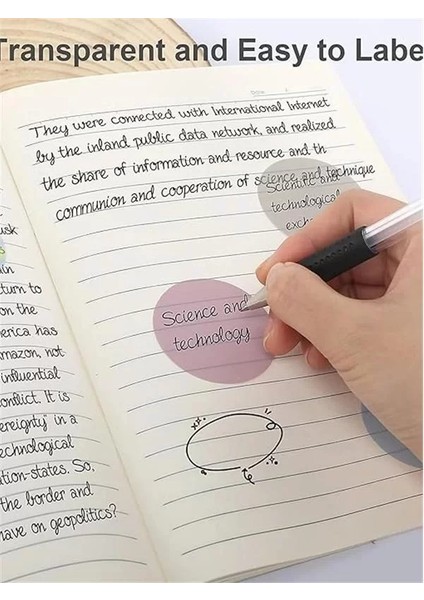 Transparent and Easy to Labe
They were connected with International Internet
by the inland public data network, and realized
the share of information and resource and th
communion and cooperation of science and technique
Scientific and
technological
exch
Science and
technology
turn to
on the
erica has
mazon, not
influential
onflict. It is
ereignty" in a
echnological
tion-states. So,
the border and
have on geopolitics?